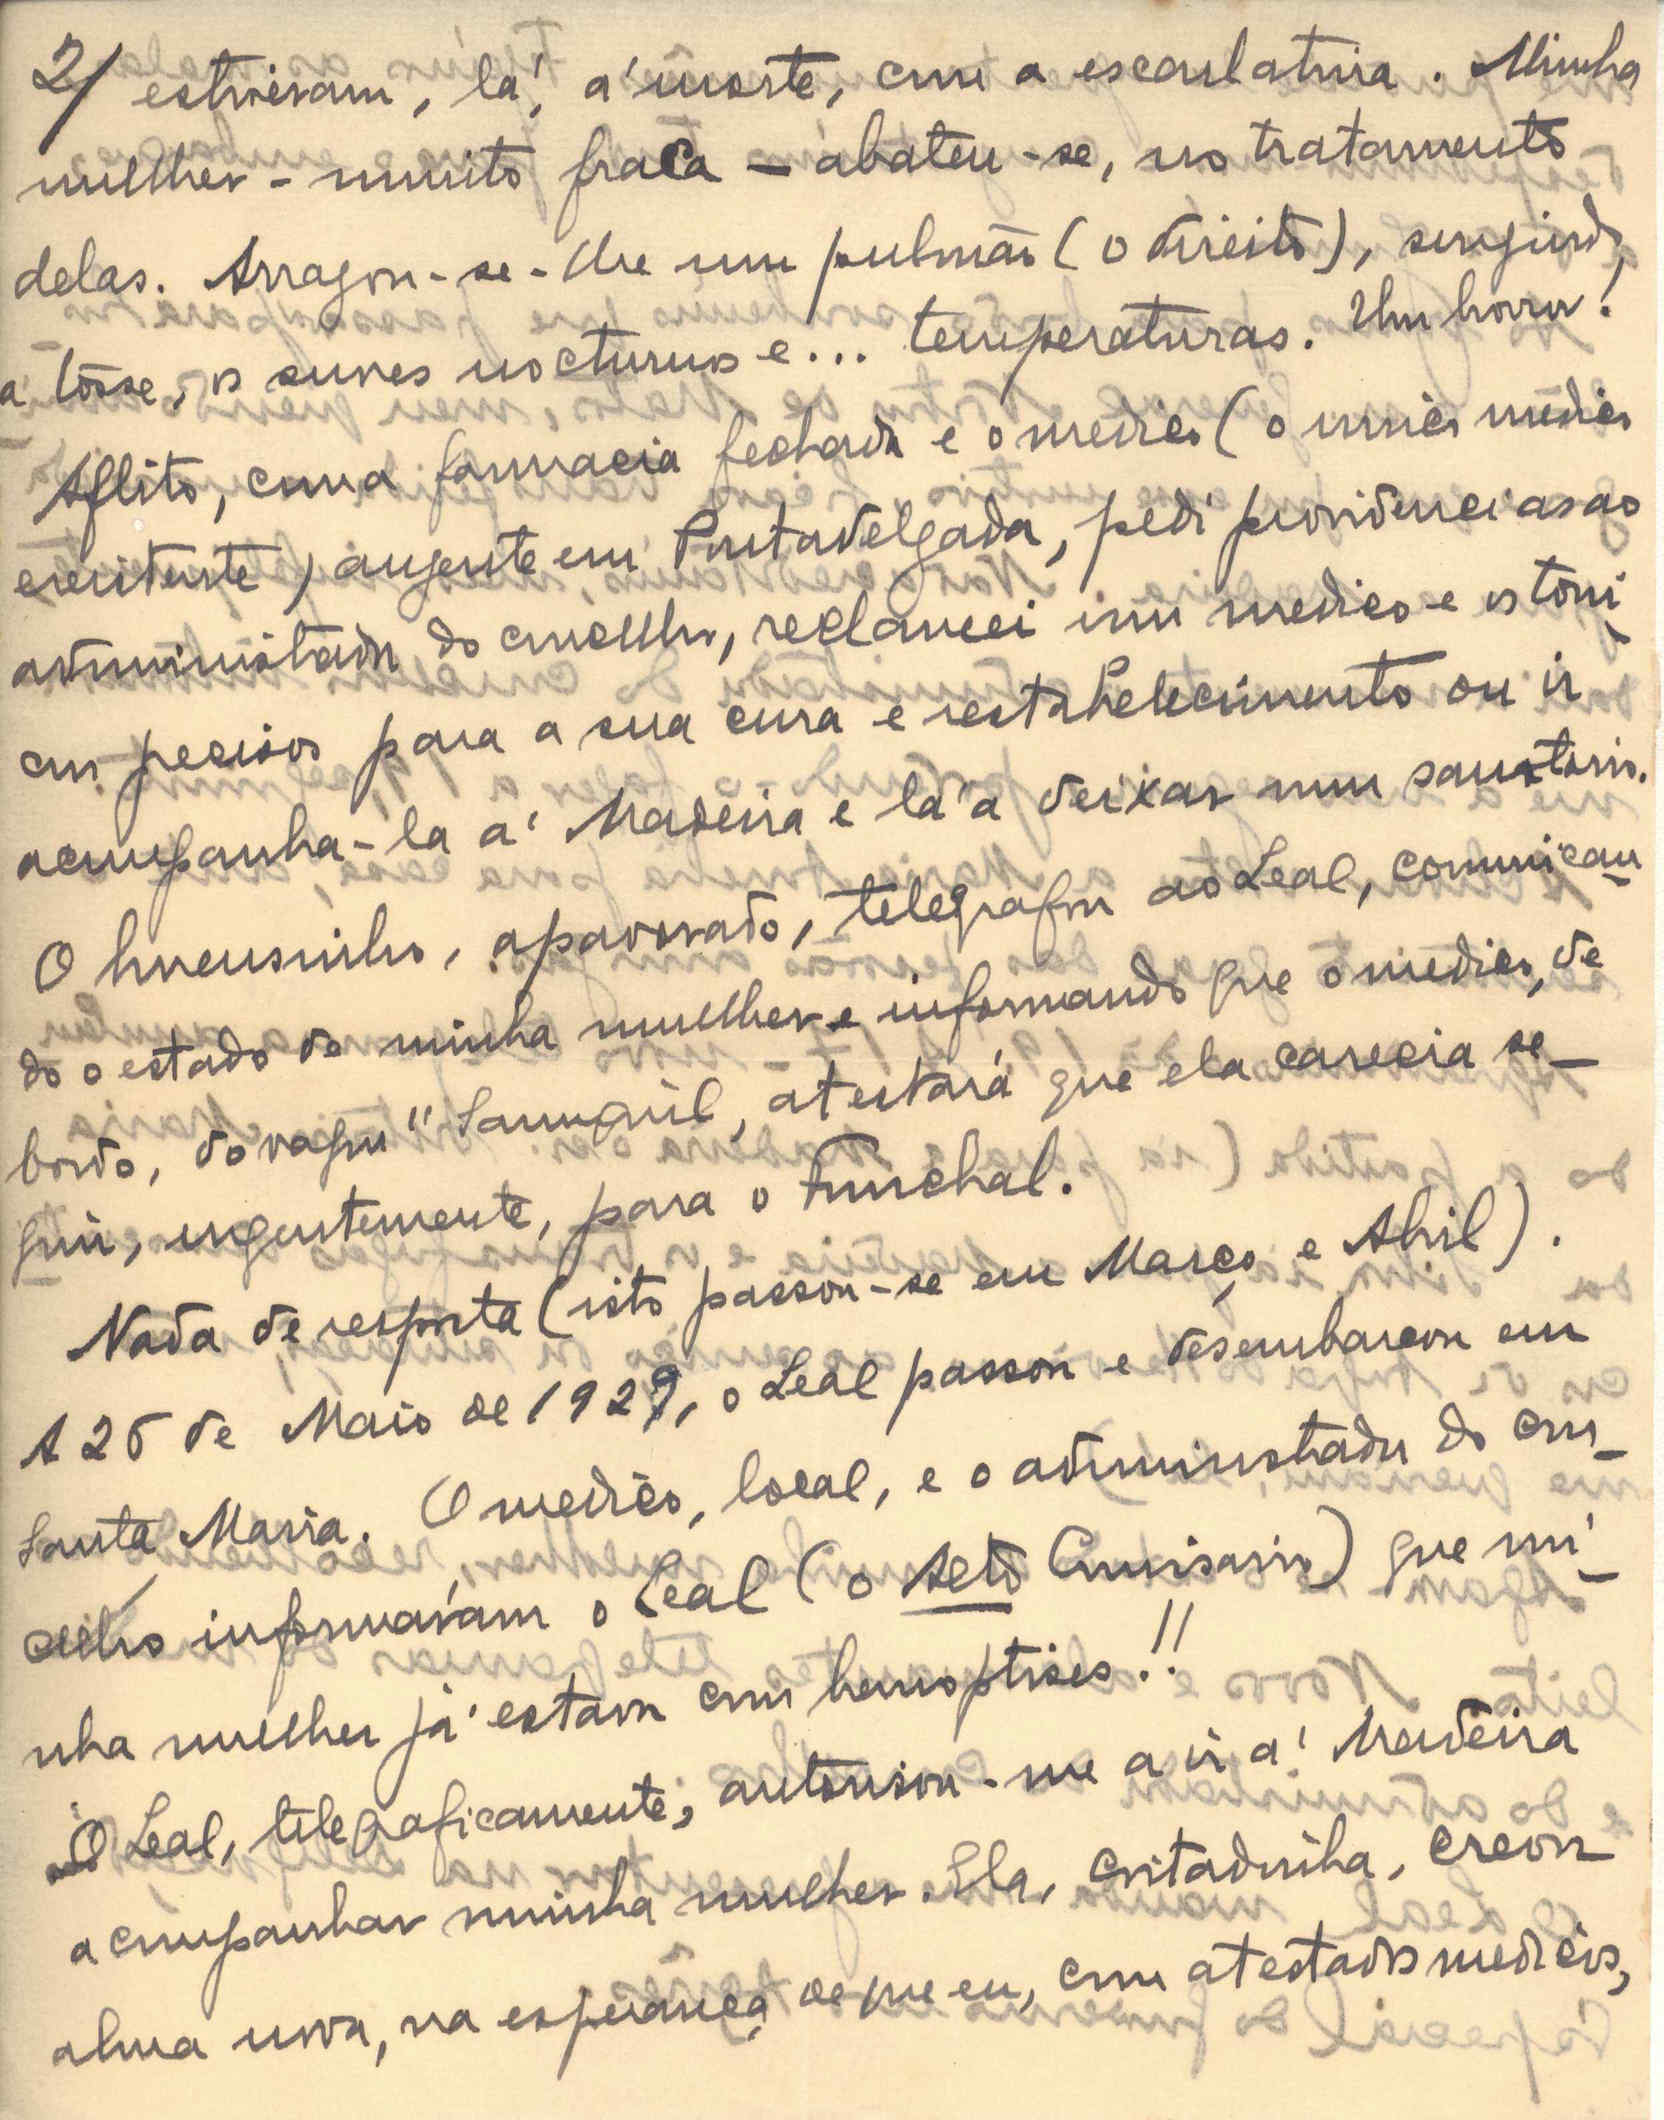 2/ estiveram, lá, á morte, com a escarlatina. Minha
mulher - muito fraca - abateu-se, no tratamento
delas. Arragou-se-lhe um pulmão (o direito), surgindo,
a tósse, os suores nocturnos e... temperaturas. Um horror!
Aflito, com a farmacia fechada e o medico (o unico médico
existente) ausente em Pontadelgada, pedi providencias ao
administrador do concelho, reclamei um medico e os tóni-
cos precisos para a sua cura e restabelecimento ou ir
acompanha-la á Madeira e lá a deixar num sanatorio.
O homensinho, apavorado, telegrafou ao Leal, comunican
do o estado de minha mulher e informando que o medico, de
bordo, do vapor "San Miguel, atestará que ela carecia se-
guir, urgentemente, para o Funchal.
Nada de resposta (isto passou-se em Março e Abril).
A 26 de Maio de 1929, o Leal passou e desembarcou em
Santa Maria. O medico, local, e o administrador do con-
celho informáram o Leal (o Alto Comisario) que mi-
nha mulher já estava com hemoptises!!
O Leal, telegraficamente, autorisou-me a ir á Madeira
acompanhar minha mulher. Ela, coitadinha, creou
alma nova, na esperança de que eu, com atestados medicos,